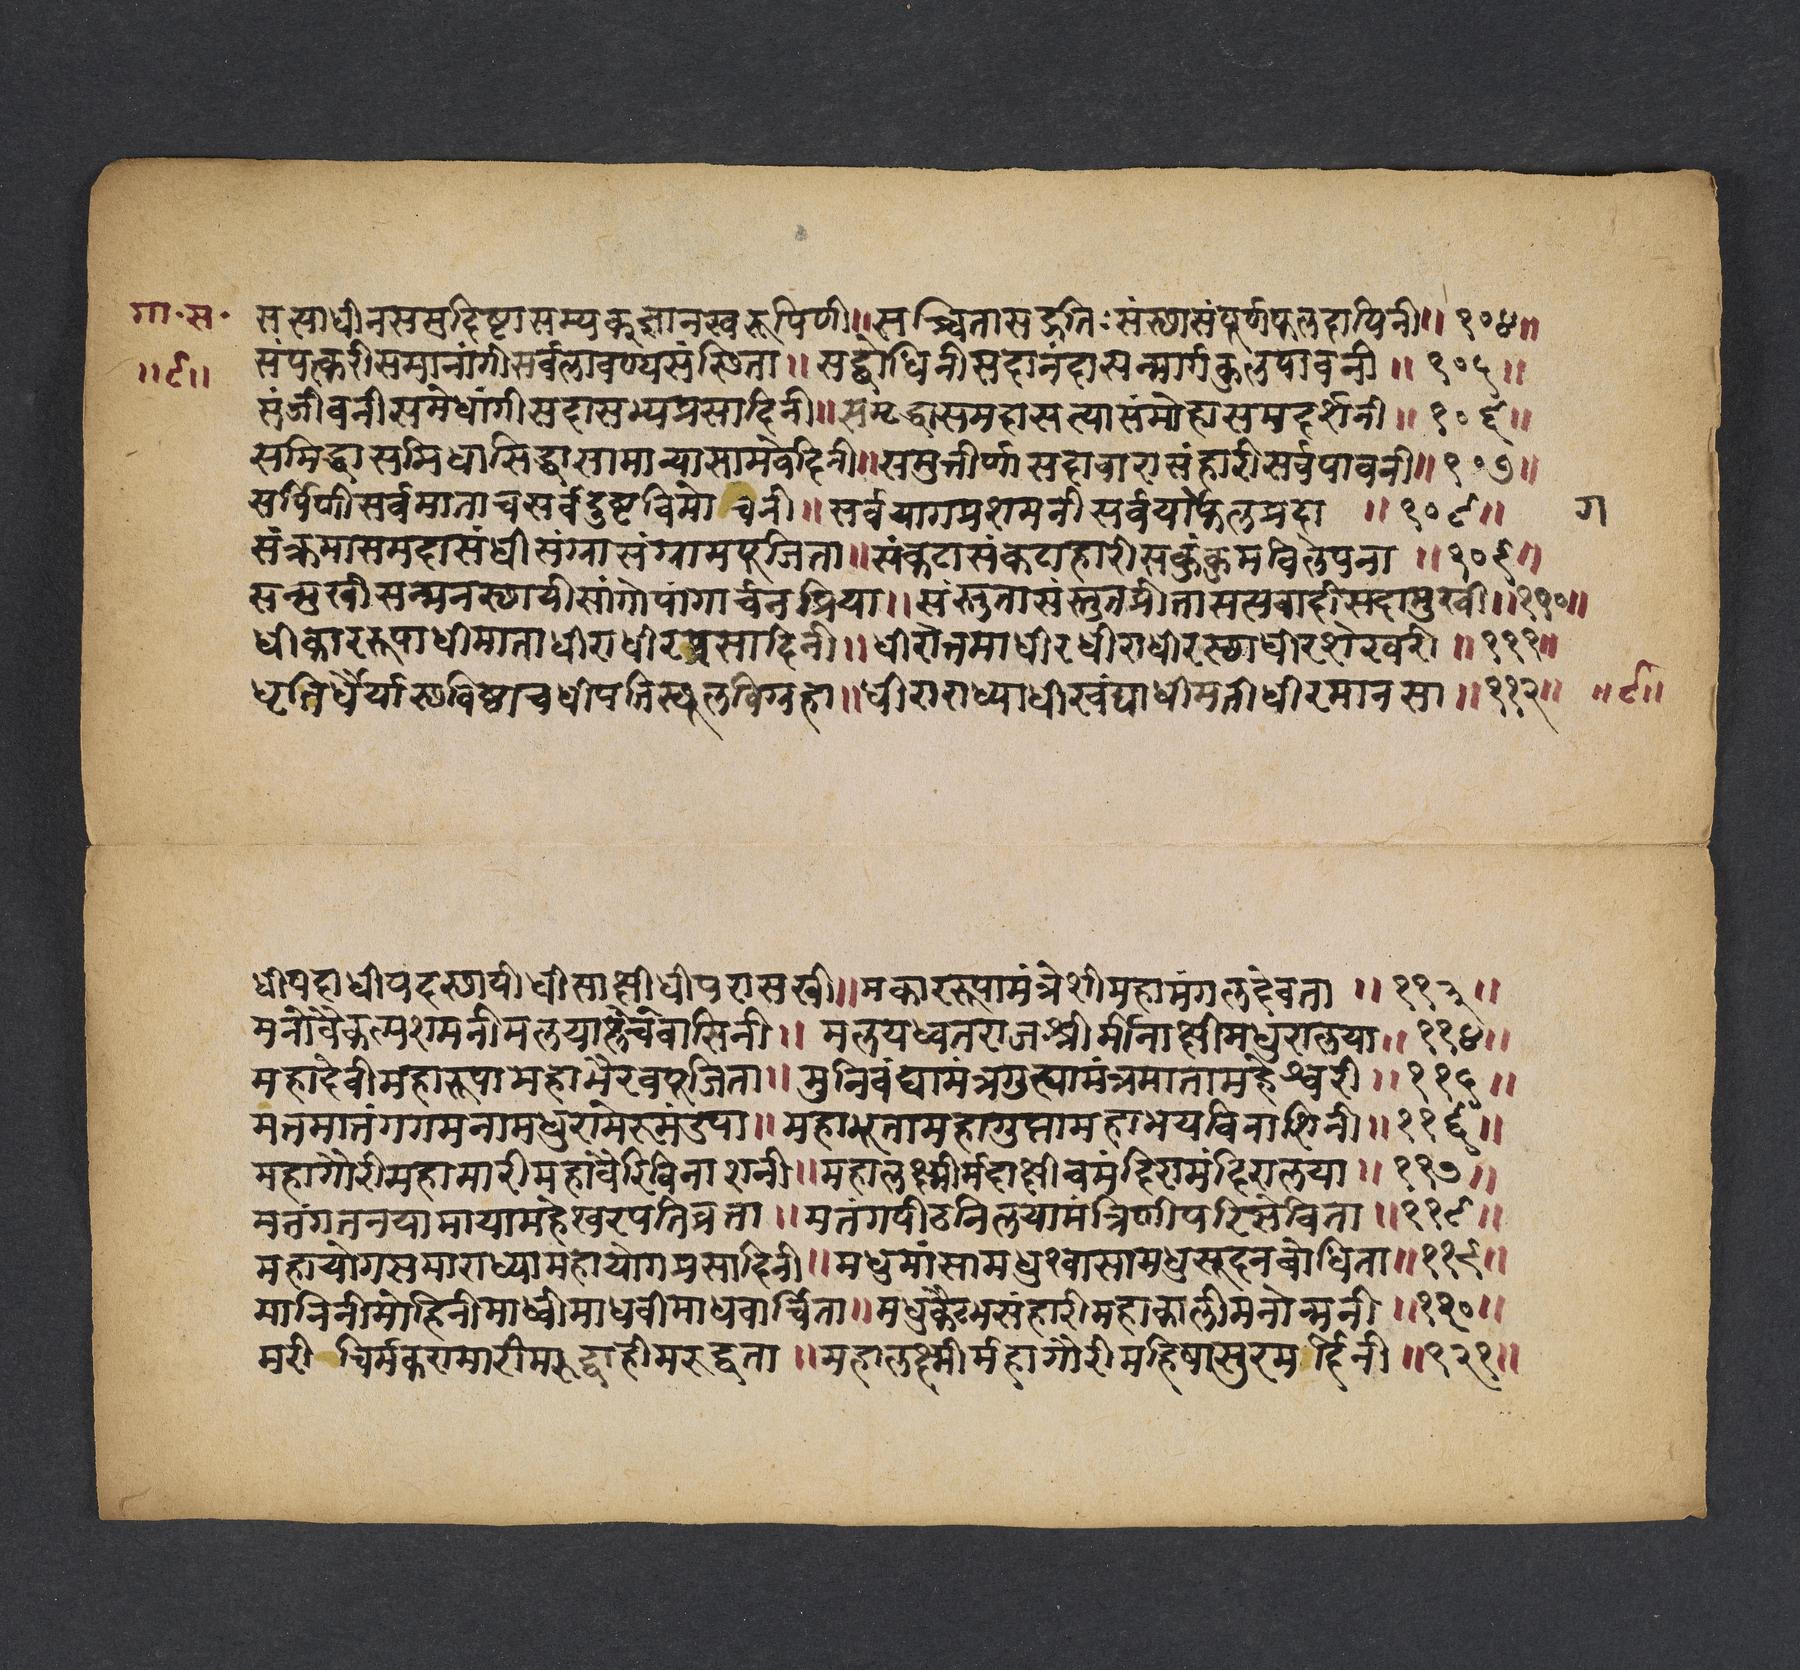 गा॰स॰
॥९॥
सस्वाधीनससुदिष्टासम्यक्ज्ञानस्वरूपिणी॥सच्चितासद्गतिःसंस्थासंपूर्णफलदायिनी॥१०४॥
संपत्करीसमानांगीसर्वलावण्यसंस्थिता॥सद्बोधिनीसदानंदासन्मार्गकुलपावनी॥१०५॥
संजीवनीसमेधांगीसदासभ्यप्रसादिनी॥संमृद्धासमदासत्यासंमोहासमदर्शनी॥१०६॥
समिद्धासमिधासिद्धासामान्यासामवेदिनी॥समुत्तीर्णासदाचारासंहारीसर्वपावनी॥१०७॥
सर्पिणीसर्वमाताचसर्वदुष्टविमोचनी॥सर्वयागप्रशमनीसर्वयोफलप्रदा॥१०८॥
ग
संक्रमासमदासंधीसंग्रासंग्रामपूजिता॥संकटासंकटाहारीसकुंकुमविलेपना॥१०९॥
सन्मुखीसन्मनस्थायीसांगोपांगार्चनप्रिया॥संस्तुतासंस्तुतप्रीतासत्सवाहीसदासुखी॥११०॥
धीकाररूपाधीमाताधीराधीरप्रसादिनी॥धीरोत्तमाधीरधीराधीरस्थाधीरशेखरी॥१११॥
धृतिर्धैर्यास्थविष्ठाचधीपतिस्थूलविग्रहा॥धीराराध्याधीरवंद्याधीमतीधीरमानसा॥११२॥
॥९॥
धीपदाधीपदस्थायीधीसाक्षीधीपरासखी॥मकाररूपामंत्रेशीमहामंगलदेवता॥११३॥
मनोवैकल्पशमनीमलयास्तैववासिनी॥मलयध्वतराजश्रीर्मीनाक्षीमधुरालया॥११४॥
महादेवीमहारूपामहाभैरवपूजिता॥मुनिवंद्यामंत्रगुह्यामंत्रमातामहेश्वरी॥११५॥
मत्तमातंगगमनामधुरामेरुमंडपा॥महाभूतामहागुप्तामहाभयविनाशिनी॥११६॥
महागौरीमहामारीमहांवैरिविनाशनी॥महालक्ष्मीर्मदाक्षीचमंदिरामंदिरालया॥११७॥
मतंगतनयामायामहेश्वरपतिव्रता॥मतंगपीठनिलयामंत्रिणीपरिसेविता॥११८॥
महायोगसमाराध्यामहायोगप्रसादिनी॥मधुमांसामधुश्वासामधुसूदनबोधिता॥११९॥
मानिनीमोहिनीमाध्वीमाधवीमाधवार्चिता॥मधुकैटभसंहारीमहाकालीमनोन्मनी॥१२०॥
मरीचिर्मकरामारीमरुद्वाहीमरुद्वता॥महालक्ष्मीर्महागौरीमहिषासुरमर्दिनी॥१२१॥